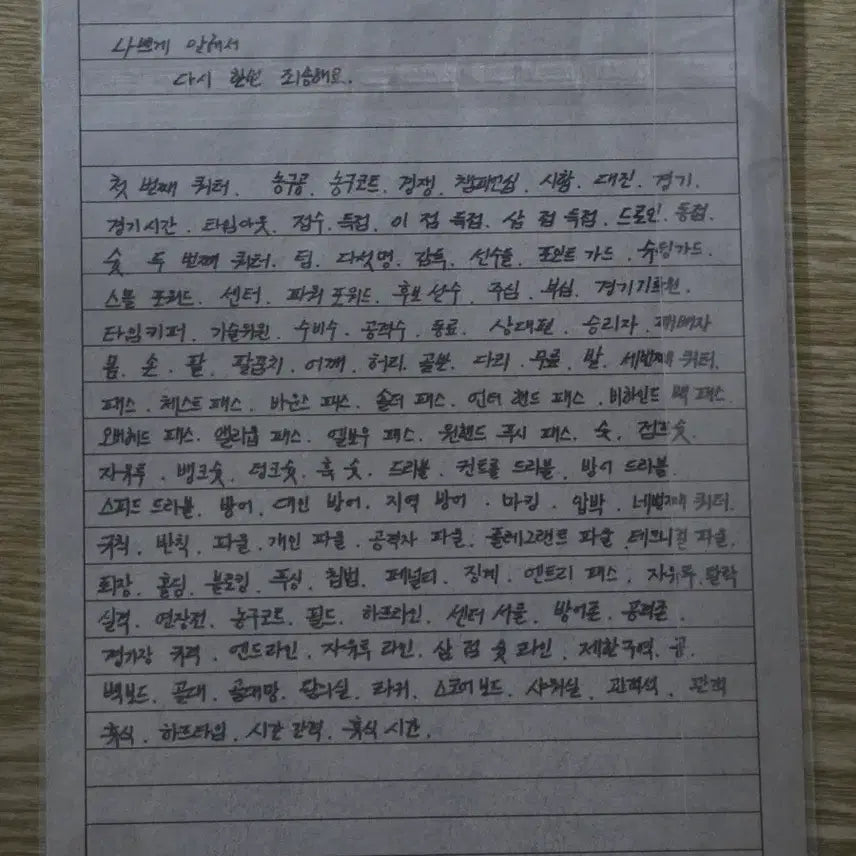 나쁘게 안해서
다시 한번 죄송해요.
첫 번째 쿼터. 농구공. 농구코트. 경쟁. 챔피언십. 시합. 대진. 경기.
경기시간. 타임아웃. 점수. 득점. 이 점 득점. 삼 점 득점. 드로인. 동점.
슛. 두 번째 쿼터. 팀. 다섯명. 감독. 선수들. 포인트 가드. 슈팅가드.
스몰 포워드. 센터. 파워 포워드. 후보 선수. 주심. 부심. 경기기록원.
타임키퍼. 기술위원. 수비수. 공격수. 동료. 상대편. 승리자. 패배자
몸. 손. 팔. 팔꿈치. 어깨. 허리. 골반. 다리. 무릎. 발. 세번째 쿼터.
패스. 체스트 패스. 바운스 패스. 숄더 패스. 언더 핸드 패스. 비하인드 백 패스.
오버헤드 패스. 앨리웁 패스. 엘보우 패스. 원핸드 푸시 패스. 슛. 점프슛.
자유투. 뱅크슛. 덩크슛. 훅 슛. 드리블. 컨트롤 드리블. 방어 드리블.
스피드 드리블. 방어. 대인 방어. 지역 방어. 마킹. 압박. 네번째 쿼터.
규칙. 반칙. 파울. 개인 파울. 공격자 파울. 플레그랜트 파울. 테크니컬 파울.
퇴장. 홀딩. 블로킹. 푸싱. 첩범. 페널티. 징계. 엔트리 패스. 자유투. 탈락
실격. 연장전. 농구코트. 필드. 하프라인. 센터 서클. 방어존. 공격존.
경기장 규격. 엔드라인. 자유투 라인. 삼 점 슛 라인. 제한구역. 공.
백보드. 골대. 골대망. 탈의실. 라커. 스코어보드. 샤워실. 관객석. 관객
휴식. 하프타임. 시간 간격. 휴식 시간.